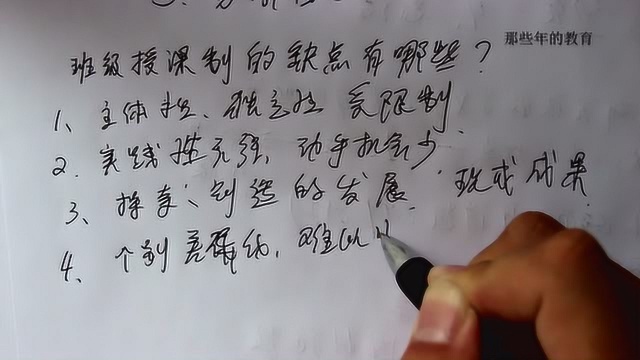 那些年的教育
班级授课制的缺点有哪些？
1、主体性、独立性受限制
2、实践性不强，动手机会少
3、探索、创造的发展 现成成果
4、个别差异 难以